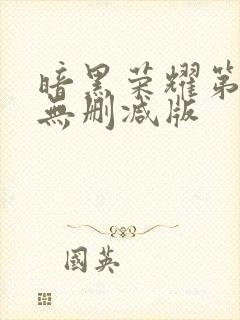 暗黑荣耀第
無删减版
國英